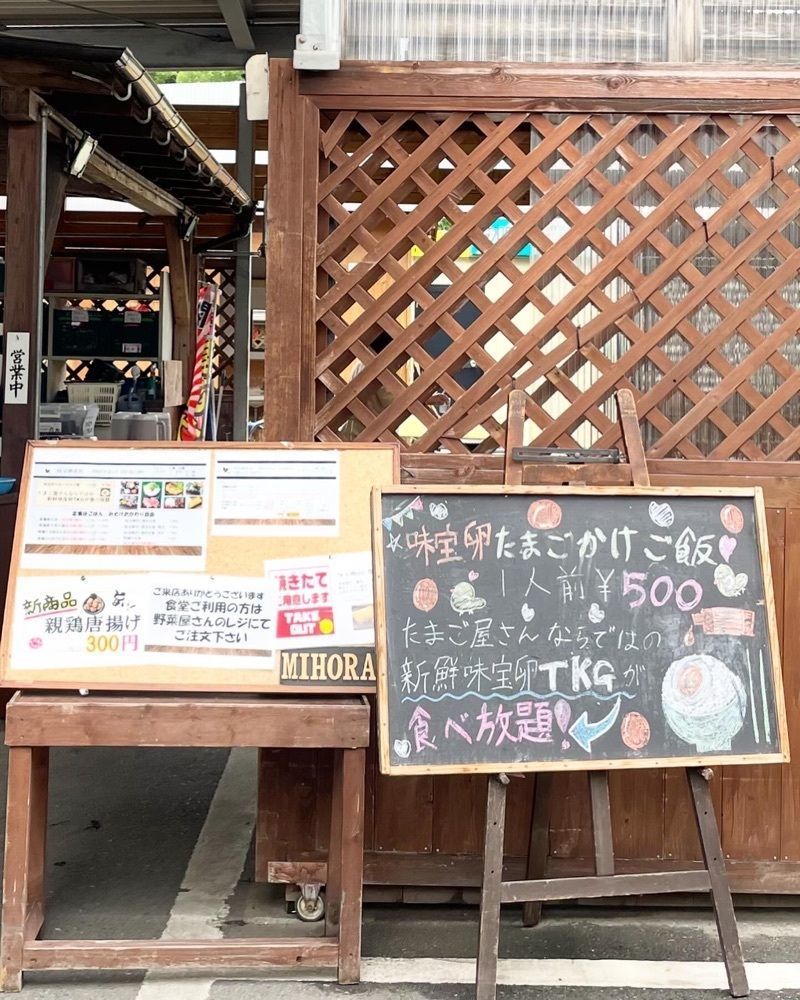 営業中
定食はごはん、みそ汁おかわり自由
新商品
親鶏唐揚げ
300円
ご来店ありがとうございます
食堂ご利用の方は
野菜屋さんのレジにて
ご注文下さい
焼きたて
ご用意します
TAKE
OUT
MIHORA
味宝卵たまごかけご飯
1人前¥500
たまご屋さんならではの
新鮮味宝卵TKGが
食べ放題!